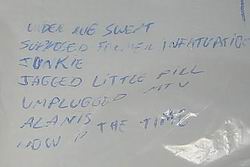 UNDER RUG SWEPT
SUPPOSED FORMER INFATUATION
JUNKIE
JAGGED LITTLE PILL
UNPLUGGED MTV
ALANIS
NOW IS THE TIME